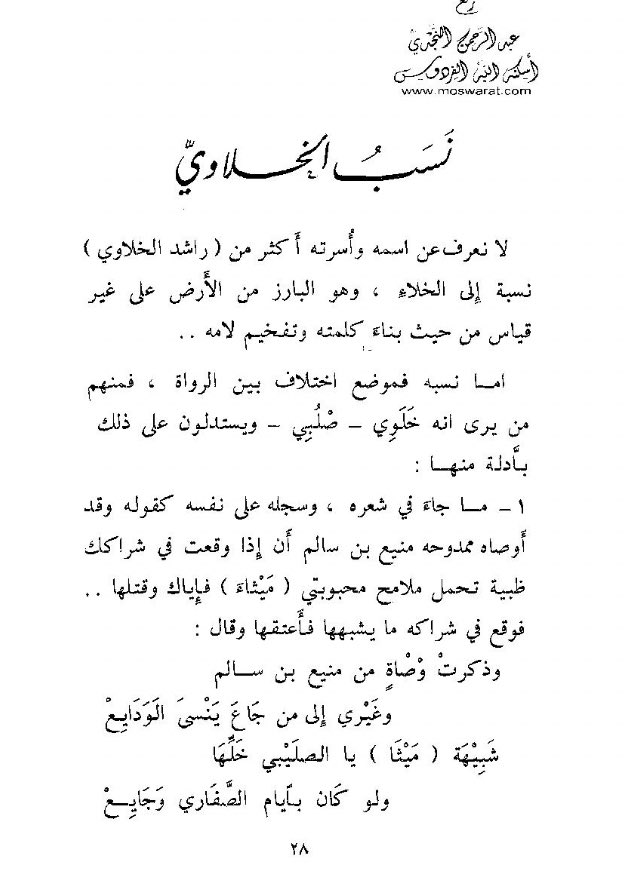 رفع
عبد الرحمن النجدي
أسكنه الله الفردوس
www.moswarat.com
نَسَبُ الخلاويّ
لا نعرف عن اسمه وأُسرته أكثر من ( راشد الخلاوي )
نسبة إلى الخلاءِ ، وهو البارز من الأَرض على غير
قياس من حيث بناءَ كلمته وتفخيم لامه ..
امـا نسبه فموضع اختلاف بين الرواة ، فمنهم
من يرى انه خَلَوِي – صْلُبِي – ويستدلون على ذلك
بأَدلة منهـا :
١ – مـا جاءَ في شعره ، وسجله على نفسه كقوله وقد
أَوصاه ممدوحه منيع بن سالم أَن إِذا وقعت في شراكك
ظبية تحمل ملامح محبوبتي ( مَيْثاءَ ) فإِياك وقتلها ..
فوقع في شراكه ما يشبهها فأَعتقها وقال :
وذكرتْ وْصْاةٍ من منيع بن سـالم
وغَيْري إِلى من جَاعَ يَنْسىَ الْوَدَايِـعْ
شَبِيْهَة ( مَيْثَا ) يا الصلَيْبي خَلِّهَا
ولو كَان بأَيام الصَّفَاري وَجَايِـعْ
٢٨